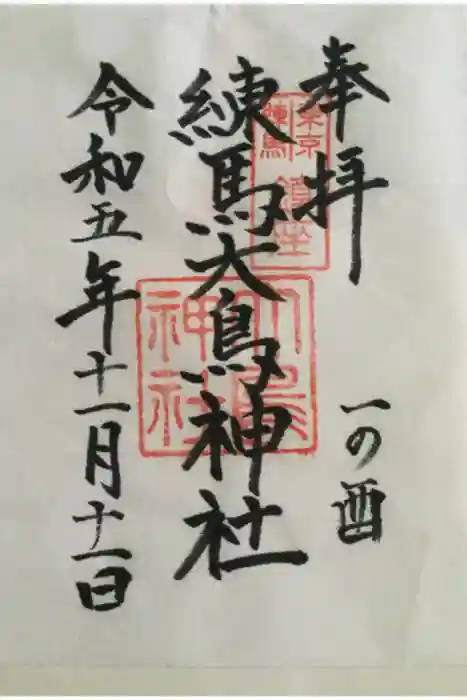 奉拝
一の酉
東京
練馬
鎮座
練馬大鳥神社
大鳥
神社
令和五年十一月十一日